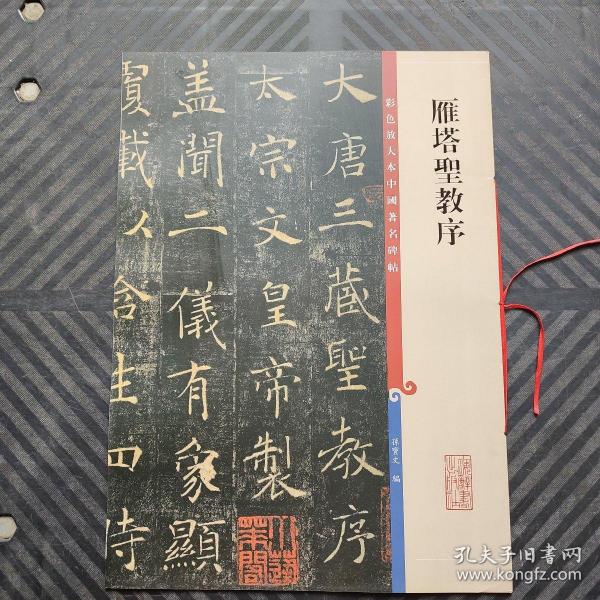 雁塔聖教序
彩色放大本中國著名碑帖
孫寶文 編
大唐三藏聖教序
太宗文皇帝製
盖聞二儀有象顯
覆載以含生四時
孔夫子旧书网
www.kongfz.com